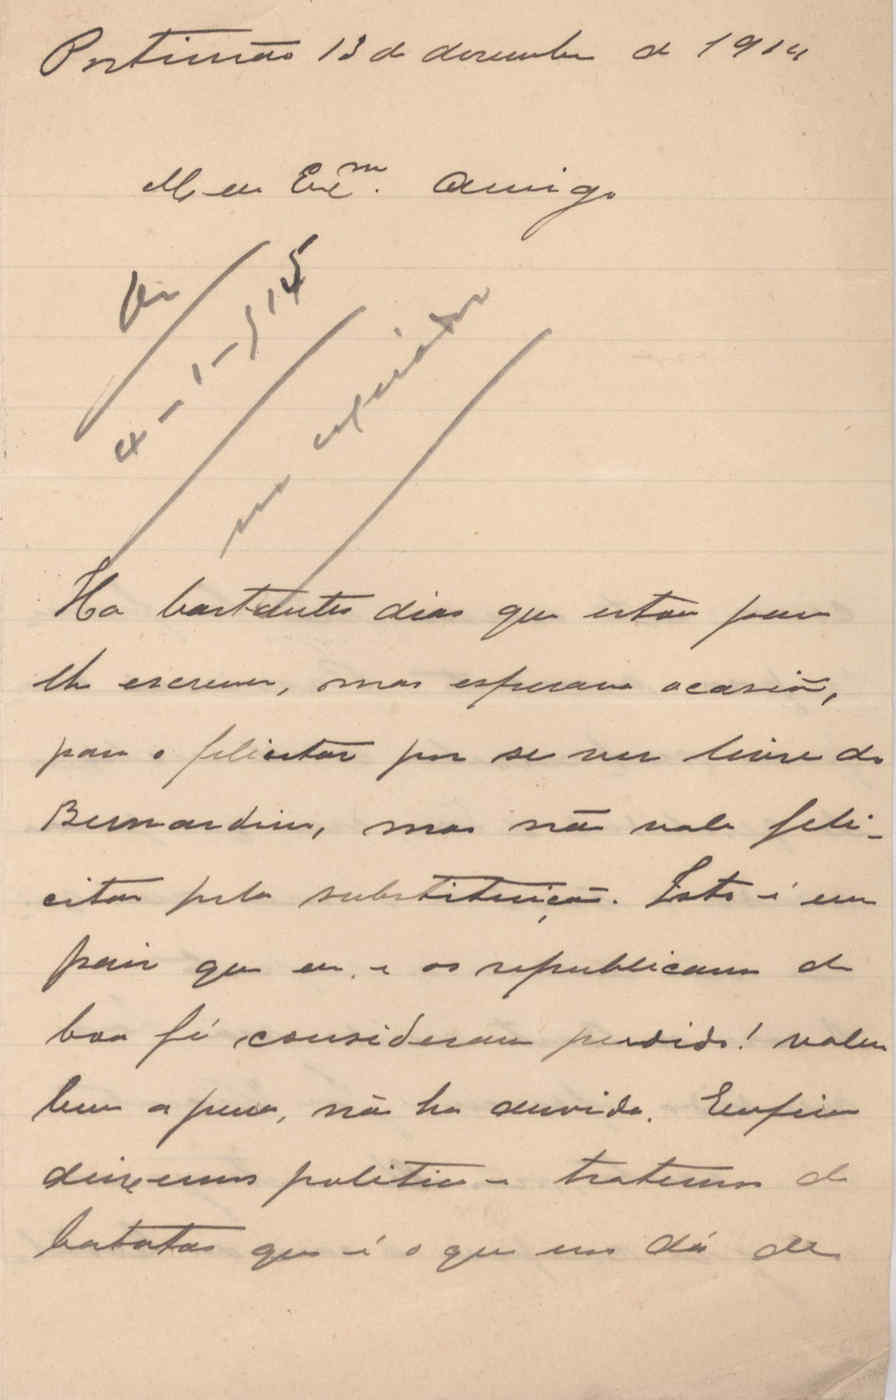 Portimão 13 de dezembro de 1914
Meu Exmo. Amigo
4-1-915
Ha bastantes dias que estou para
lhe escrever, mas esperava ocasião,
para o felicitar por se ver livre do
Bernardino, mas não vale feli-
citar pela substituição. Isto é um
paiz que eu e os republicanos de
boa fé consideram perdido! valeu
bem a pena, não ha duvida. Emfim
deixemos politica e tratemos de
batatas que é o que nos dá de